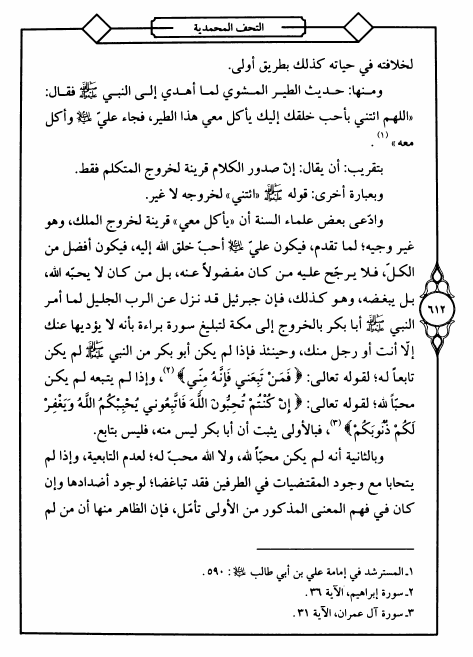 التحف المحمدية
لخلافته في حياته كذلك بطريق أولى.
ومنها: حديث الطير المشوي لما أهدي إلى النبي ﷺ فقال:
«اللهم ائتني بأحب خلقك إليك يأكل معي هذا الطير، فجاء عليّ وأكل
معه» (١).
بتقريب: أن يقال: إنّ صدور الكلام قرينة لخروج المتكلم فقط.
وبعبارة أخرى: قوله ﷺ «ائتني» لخروجه لا غير.
وادّعى بعض علماء السنة أن «يأكل معي» قرينة لخروج الملك، وهو
غير وجيه؛ لما تقدم، فيكون عليّ أحبّ خلق الله إليه، فيكون أفضل من
الكلّ، فلا يرجّح عليه من كان مفضولاً عنه، بل من كان لا يحبّه الله،
بل يبغضه، وهو كذلك، فإن جبرئيل قد نزل عن الرب الجليل لما أمر
النبي ﷺ أبا بكر بالخروج إلى مكة لتبليغ سورة براءة بأنه لا يؤديها عنك
إلّا أنت أو رجل منك، وحينئذ فإذا لم يكن أبو بكر من النبي ﷺ لم يكن
تابعاً له؛ لقوله تعالى: ﴿ فَمَنْ تَبِعَني فَإنَّهُ مِنّي﴾ (٢)، وإذا لم يتبعه لم يكن
محبّاً لله؛ لقوله تعالى: ﴿ إنْ كُنْتُمْ تُحِبُّونَ اللَّهَ فَاتَّبِعُوني يُحْبِبْكُمُ اللَّهُ وَيَغْفِرْ
لَكُمْ ذُنُوبَكُمْ﴾ (٣)، فبالأولى يثبت أن أبا بكر ليس منه، فليس بتابع.
وبالثانية أنه لم يكن محبّاً لله، ولا الله محب له؛ لعدم التابعية، وإذا لم
يتحابا مع وجود المقتضيات في الطرفين فقد تباغضا؛ لوجود أضدادها وإن
كان في فهم المعنى المذكور من الأولى تأمّل، فإن الظاهر منها أن من لم
٦١٢
١ـ المسترشد في إمامة علي بن أبي طالب : ٥٩٠.
٢ـ سورة إبراهيم، الآية ٣٦.
٣ـ سورة آل عمران، الآية ٣١.